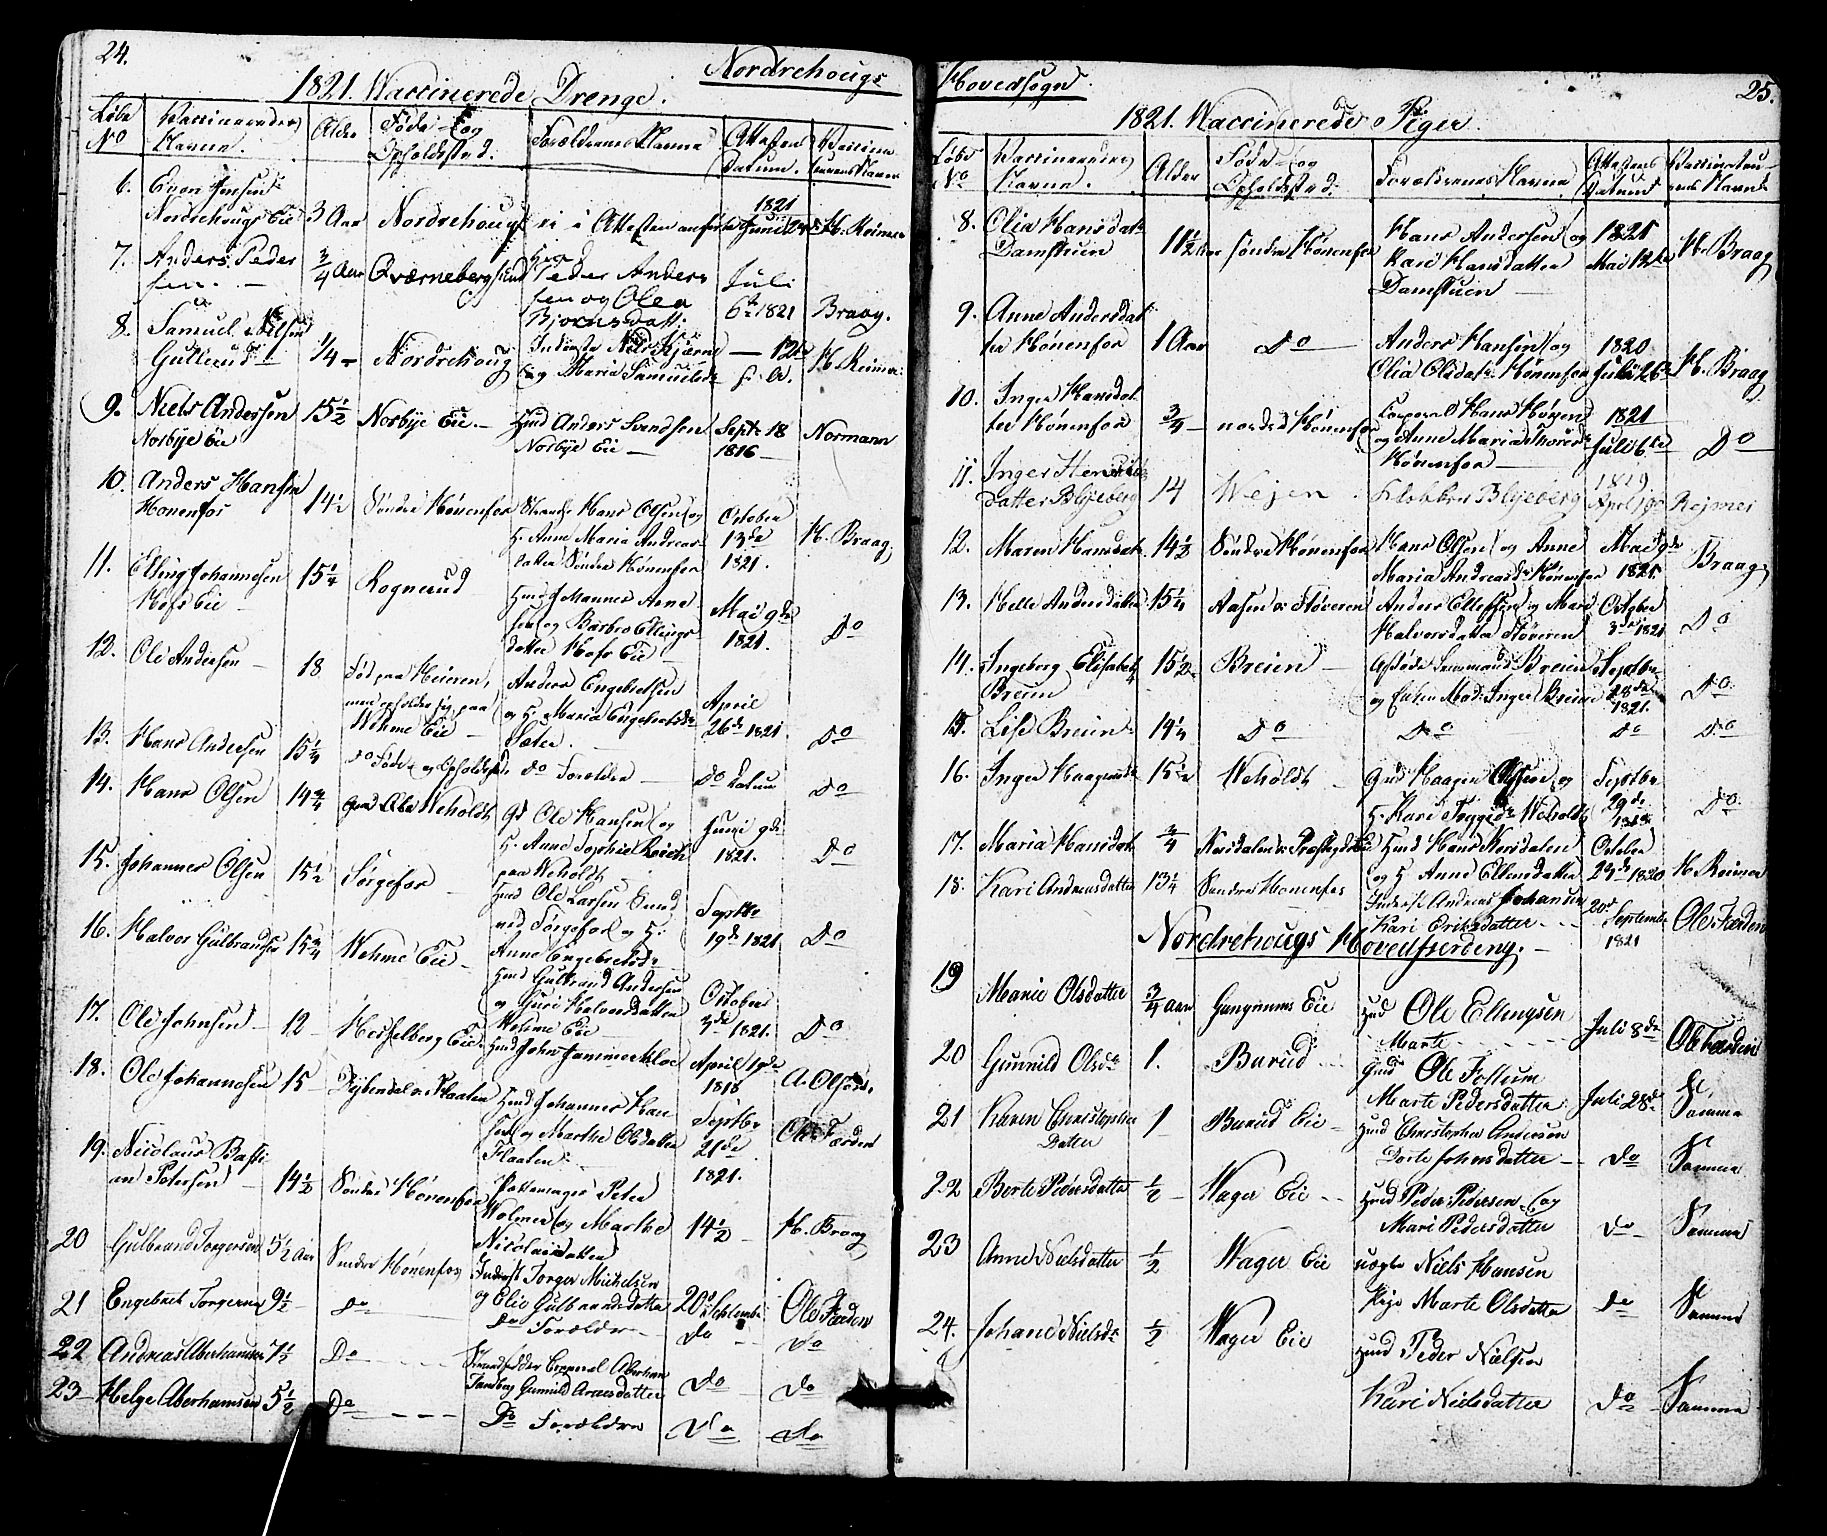 24.
Nordrehougs
1821. Vaccinerede Drenge.
Løbe No
Vaccinerendes Navne.
Alder
Føde- og Opholdssted.
Forældrenes Navne
Attestens Datum.
Vaccinateurens Navne
6. Even Jensen Nordrehougs Eie
3 Aar
Nordrehoug
ei i Attesten anført
1821 Juni
H. Reimer
7. Anders Pedersen.
3/4 Aar
Qværneberg
Peder Andersen og Olea Bjornsdatt:
Juli 6te 1821
Braag.
8. Samuel Nilsen Gullerud
1/4
Nordrehoug
Inderste Nils Kjærne og Maria Samuelsd:
12te
H. Reimer
9. Niels Andersen Norbye Eie
15 1/2
Norbye Eie
Huusd Anders Svendsen Norbye Eie
Septr 18 1816
Normann
10. Anders Hansen Honenfos
14 1/2
Søndre Hønenfos
Hans Olsen og H. Anne Maria Andreasdatter Søndre Hønenfos
October 13de 1821.
H. Braag
11. Elling Johannesen Hofs Eie
15 1/4
Rognerud
Barbro Ellingsdatter Hofs Eie
Mai 9de 1821.
Do
12. Ole Andersen
18
Fød paa men opholder sig paa Wehme Eie
Anders Engebretsen og H. Maria Engebretsd:
April 26de 1821
Do
13. Hans Andersen
15 1/4
do Føde- og Opholdssted
do Forældre
Do Datum
Do
14. Hans Olsen
14 3/4
Weholdt
Gd Ole Hansen og H. Anne Sophie paa Weholdt
Juni 9de 1821.
Do
15. Johannes Olsen
15 1/2
Sørgefos
Huusd Ole Larsen ved Sørgefos og H: Anne Engebretsd:
Septbr 19de 1821
Do
16. Halvor Gulbrandsen
15 3/4
Wehme Eie
Huusd Gulbrand Andersen og Guri Halvorsdatter Wehme Eie
October 3de 1821.
Do
17. Ole Johnsen
12
Hesselberg Eie
Huusd John
April 19de 1818
A. Olsen
18. Ole Johannesen
15
Flaaten
Huusd Johannes Hansen og Marthe Olsdatter Flaaten
Septbr 21de 1821.
Ole Færden
19. Nicolaus Bastian Petersen
14 1/2
Søndre Hønenfos
Peter Wolmer og Marthe Nicolaisdatter
14 1/2
H. Braag
20 Gulbrand Torgersen
5 1/2 Aar
Søndre Hønenfos
Inderst Torger Michelsen og Elie Gulbrandsdatter
20de September
Ole Færden
21 Engebret Torgersen
9 1/2
Do
Do Forældre
Do
Do
22 Andreas Aberhamsen
7 1/2
Do
Corporal Aberham Gunild Arnesdatter
Do
Do
23 Helge Aberhamsen
5 1/2
Do
Do Forældre
Do
Do
Hovedsogn.
25.
1821. Vaccinerede Piger.
Løbe No
Vaccinerendes Navne.
Alder
Føde- og Opholdssted.
Forældrenes Navne
Attestens Datum
Vaccinateurens Navne
8. Olia Hansdatr Damstuen
11 1/2 Aar
søndre Hønenfos
Hans Andersen og Kari Hansdatter Damstuen
1821 Mai 12te
H. Braag
9. Anne Andersdatter Hønenfos
1 Aar
Do
Anders Hansen og Olia Olsdatr Hønenfos
1820 Juli 26de
H. Braag
10. Inger Hansdatter Hønenfos
3/4
nordre Hønenfos
Corporal Hans og Anne Maria Hønenfos
1821 Juli 6te
Do
11. Inger datter Blyeberg
14
Wejen
Klokker Blyeberg
1819 April 19de
Rejmer
12. Maren Hansdatr
14 1/2
Søndre Hønenfos
Hans Olsen og Anne Maria Andreasdr Hønenfos
Mai 9de 1821.
Braag
13. Helle Andersdatter
15 1/4
Aasen v: Støveren
Anders Ellefsen og Mari Halvorsdatter Støveren
October 3de 1821
Do
14. Ingeborg Elisabeth Breien
15 1/2
Breien
Afdøde Breien og Enken Mad: Inger Breien
Septbr 28de 1821.
Do
15. Lise Breien
14 1/4
Do
Do
Do
Do
16. Inger Haagensdr
15 1/2
Weholdt
Gmd Haagen og H. Kari Weholdt
Septbr 29de
Do
17. Maria Hansdatr
3/4
Huusd Hans og H. Anne Ellensdatter
October 23de 1820
H. Reimer
18. Kari Andreasdatter
13 1/4
Søndre Honenfos
Inderst Andreas Johansen Kari Eriksdatter
20de September 1821
Ole Færden
Nordrehougs Hovedfierding.
19 Marie Olsdatter
3/4 Aar
Eie
Huusd Ole Ellingsen Marte
Juli 8de
Ole Færden
20 Gunnild Olsdr
1.
Burud
Gmd Ole Follum Marte Pedersdatter
Juli 28de
Samme
21 Karen Christopher Datter
1
Burud Eie
Huusd Christopher Andersen Dorte Johnsdatter
Do
Samme
22 Berte Pedersdatter
1/2
Wager Eie
Huusd Peder Pedersen og Mari Pedersdatter
Do
Samme
23 Anne Nielsdatter
1/2
Wager Eie
uægte Niels Hansen Pige Marte Olsdatter
Do
Samme
24. Johane Nielsdr
1/2
Wager Eie
Huusd Peder Nielsen Kari Nielsdatter
Do
Samme